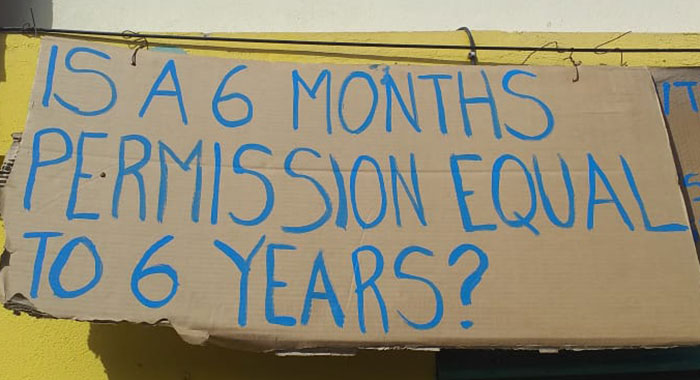 IS A 6 MONTHS
PERMISSION EQUAL
TO 6 YEARS?
IT